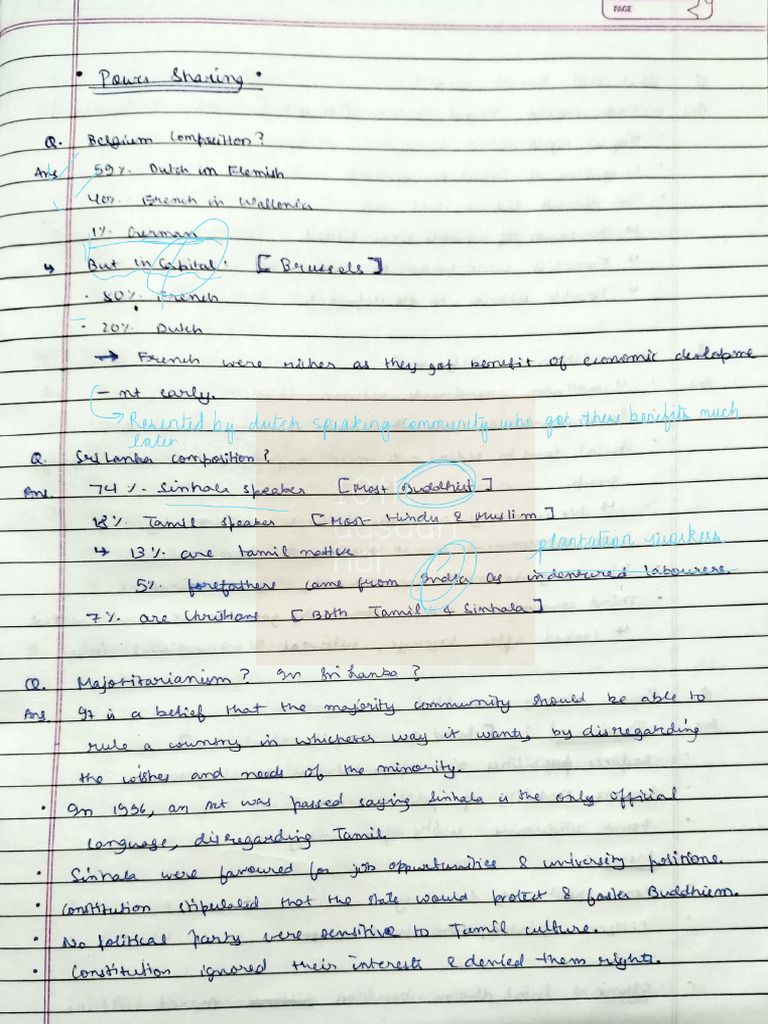 PAGE
• Power Sharing •
Q. Belgium Composition?
Ans 59% Dutch in Flemish
40% French in Wallonia
1% German
↳ But in Capital: [Brussels]
· 80% French
· 20% Dutch
→ French were richer as they got benefit of economic developme
- nt early.
→ Resented by dutch speaking community who got these benefits much
later
Q. Sri Lanka composition?
Ans 74% - Sinhala speaker [Most Buddhist]
18% Tamil speaker [Most Hindu & Muslim]
↳ 13% are tamil native
plantation workers
5% forefathers came from India as indentured labourers.
7% are Christians [Both Tamil & Sinhala]
Q. Majoritarianism? In Sri Lanka?
Ans It is a belief that the majority community should be able to
rule a country in whichever way it wants, by disregarding
the wishes and needs of the minority.
• In 1956, an act was passed saying Sinhala is the only official
language, disregarding Tamil.
• Sinhala were favoured for job oppurtunities & university positions.
• Constitution stipulated that the state would protect & foster Buddhism.
• No political party were sensitive to Tamil culture.
• Constitution ignored their interests & denied them rights.